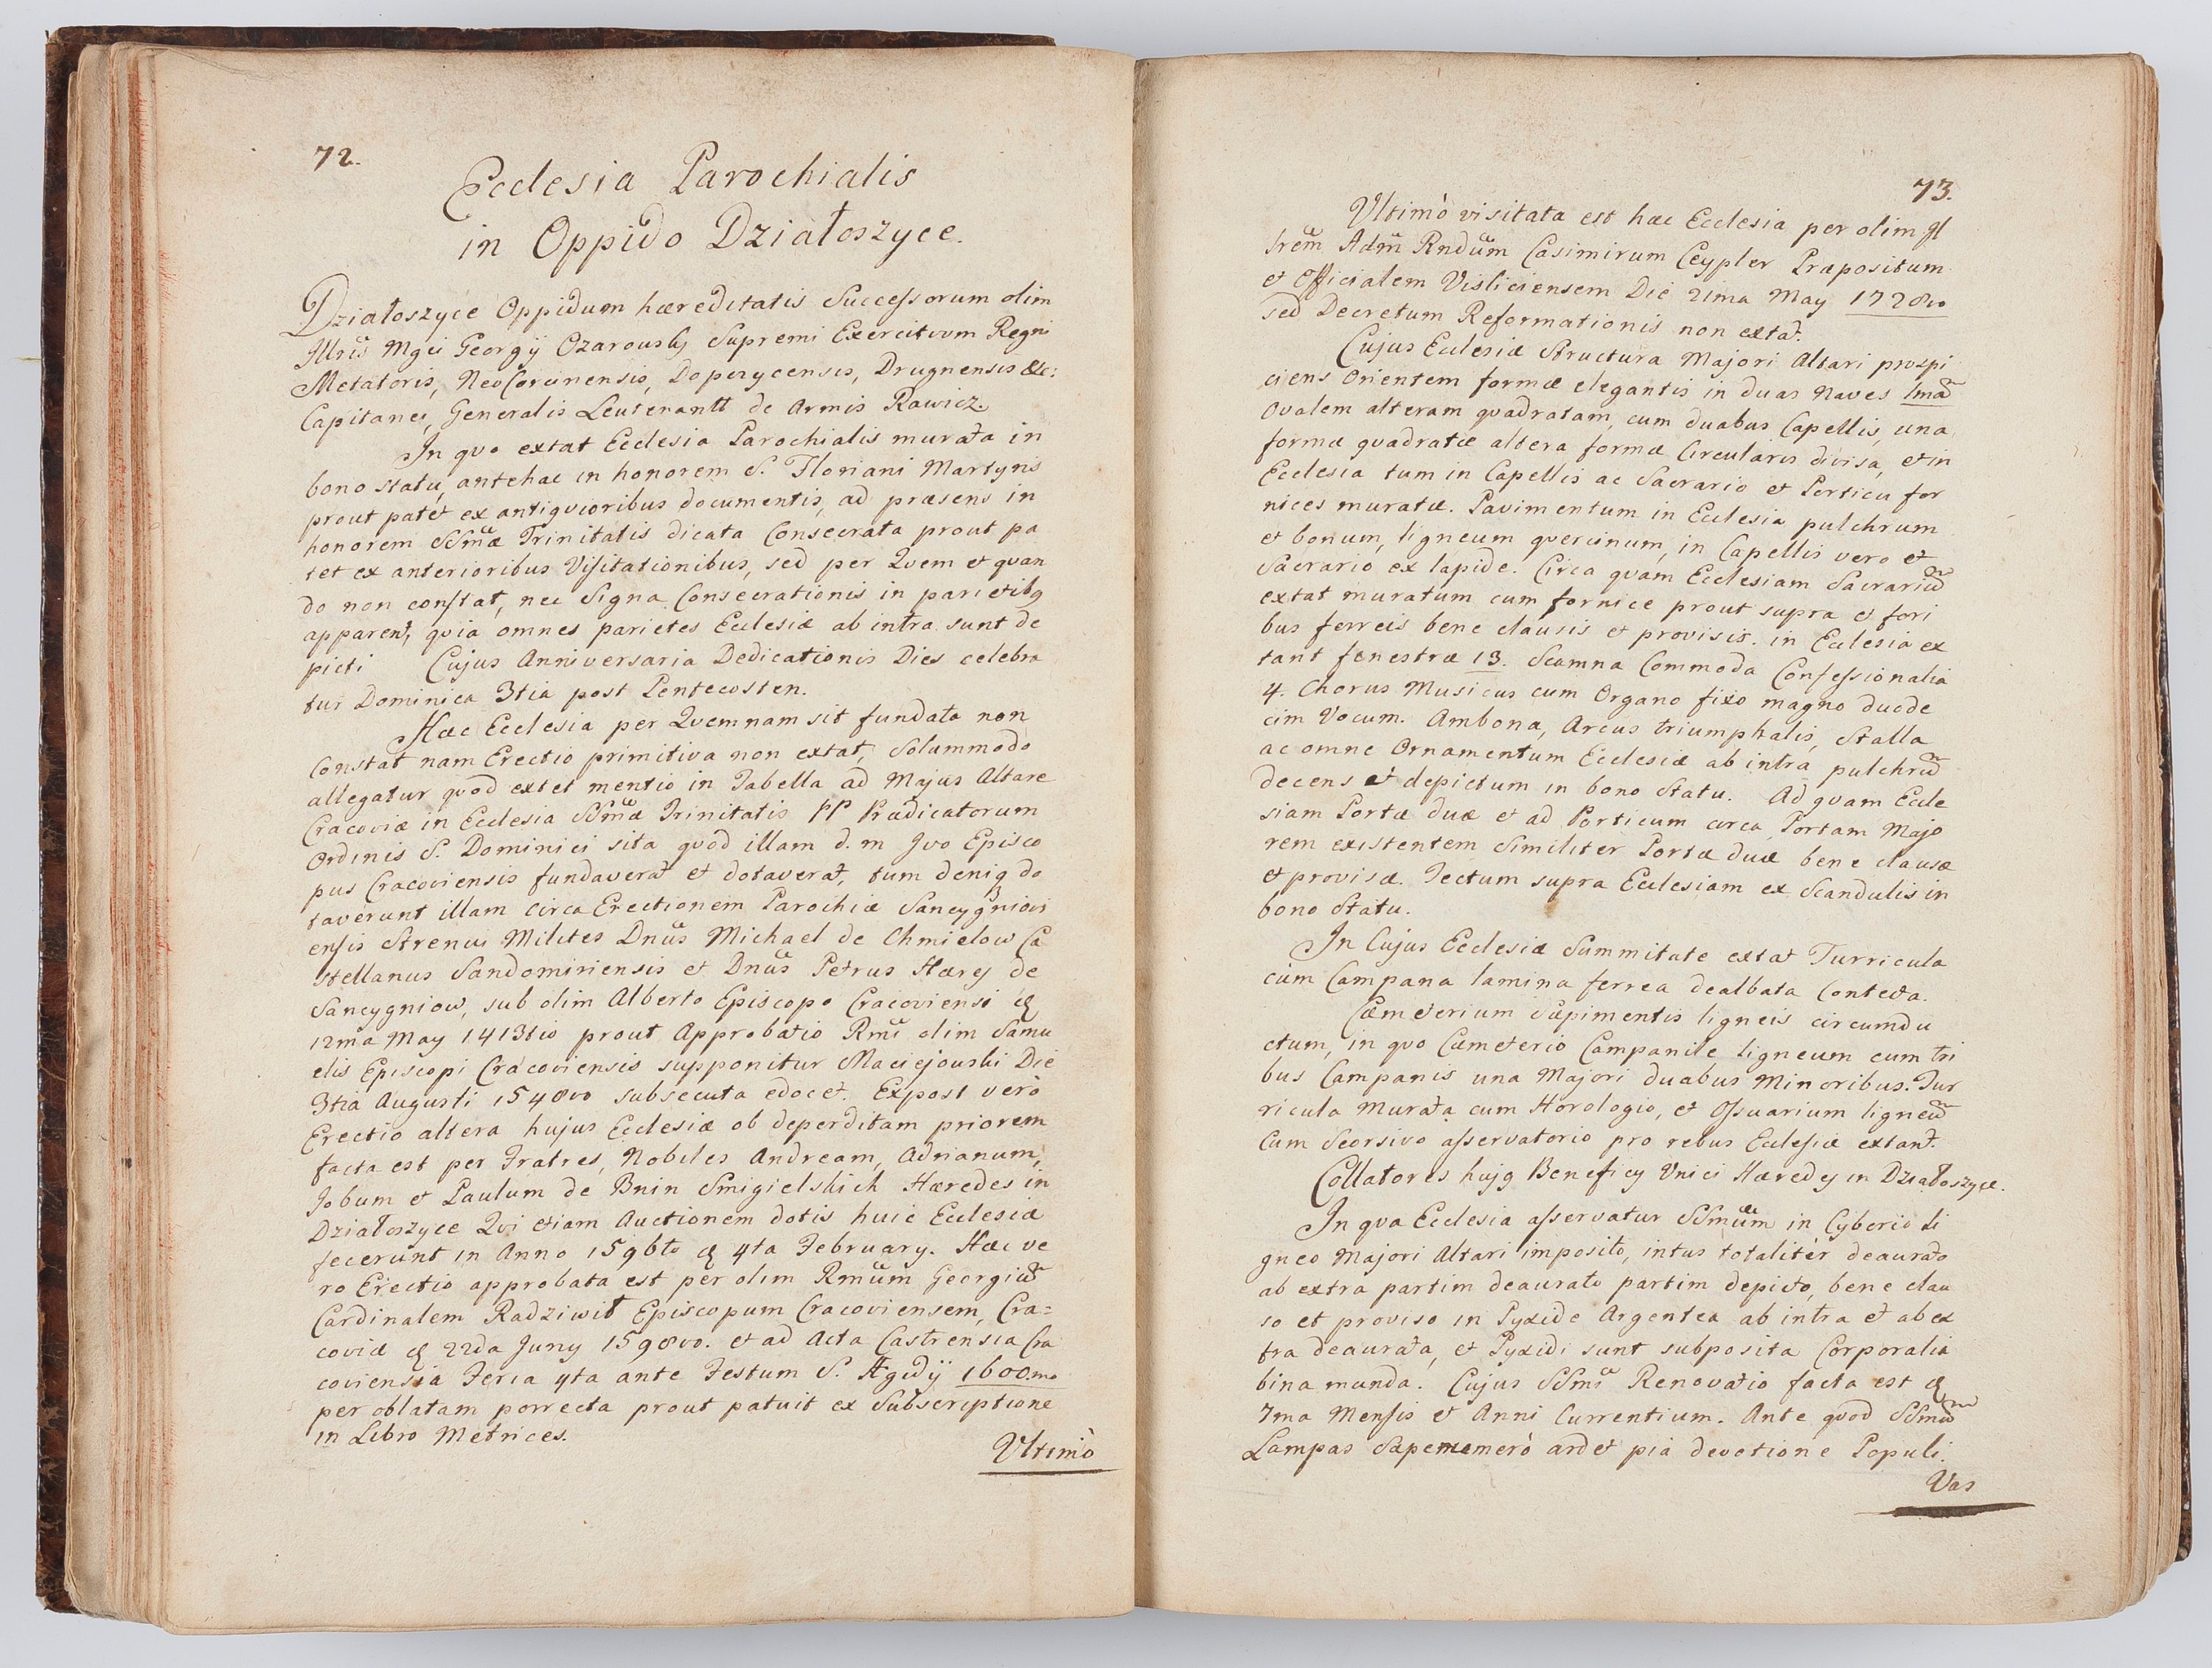 72.
Ecclesia Parochialis
in Oppido Działoszyce.
Działoszyce Oppidum hæreditatis Successorum olim
Illris Mgci Georgij Ozarowskj Supremi Exercituum Regni
Metatoris, NeoCorcinensis, Doperycensis, Drugnensis &c:
Capitanei, Generalis Leutenantt de Armis Rawicz.
In quo extat Ecclesia Parochialis murata in
bono statu, antehac in honorem S. Floriani Martyris
prout patet ex antiquioribus documentis, ad præsens in
honorem SSmæ Trinitatis dicata Consecrata prout pa
tet ex anterioribus Visitationibus, sed per Quem et quan
do non constat, nec Signa Consecrationis in parietibg
apparent, quia omnes parietes Ecclesiæ ab intra sunt de
picti Cujus Anniversaria Dedicationis Dies celebra
tur Dominica 3tia post Pentecosten.
Hæc Ecclesia per Quemnam sit fundata non
Constat nam Erectio primitiva non extat, Solummodo
allegatur quod extet mentio in Tabella ad Majus Altare
Cracoviæ in Ecclesia SSmæ Trinitatis PP Prædicatorum
Ordinis S. Dominici sita quod illam d. m Ivo Episco
pus Cracoviensis fundaverat et dotaverat, tum deniq do
taverunt illam circa Erectionem Parochiæ Sancygniovi
ensis Strenui Milites Dnus Michael de Chmielow Ca
stellanus Sandomiriensis et Dnus Petrus Hærej de
Sancygniow, sub olim Alberto Episcopo Cracoviensi d
12ma May 1413tio prout Approbatio Rmi olim Samu
elis Episcopi Cracoviensis supponitur Maciejowski Die
3tia Augusti 1548vo subsecuta edocet. Expost verò
Erectio altera hujus Ecclesiæ ob deperditam priorem
facta est per Fratres, Nobiles Andream, Adrianum,
Jobum et Paulum de Bnin Smigielskich Hæredes in
Działoszyce Qvi etiam Auctionem dotis huic Ecclesiæ
fecerunt in Anno 1596to d 4ta February. Hæc ve
ro Erectio approbata est per olim Rmum Georgium
Cardinalem Radziwił Episcopum Cracoviensem, Cra=
coviæ d 22da Juny 1598vo. et ad Acta Castrensia Cra
coviensia Feria 4ta ante Festum S. Ægidij 1600mo
per oblatam porrecta prout patuit ex Subscriptione
in Libro Metrices.
Ultimò
73.
Ultimò visitata est hæc Ecclesia per olim Il
lrem Adm Rndum Casimirum Ceypler Præpositum
et Officialem Visliciensem Die 21ma May 1728vo
sed Decretum Reformationis non extat.
Cujus Ecclesiæ Structura Majori Altari prospi
ciens Orientem formæ elegantis in duas Naves 1ma
Ovalem alteram quadratam, cum duabus Capellis, una
formæ quadratæ altera formæ Circularis divisa, et in
Ecclesia tum in Capellis ac Sacrario et Porticu for
nices muratæ. Pavimentum in Ecclesia pulchrum
et bonum, ligneum quercinum, in Capellis vero et
Sacrario ex lapide. Circa quam Ecclesiam Sacrarium
extat muratum cum fornice prout supra et fori
bus ferreis bene clausis et provisis. in Ecclesia ex
tant fenestræ 13. Scamna Commoda Confessionalia
4. Chorus Musicus cum Organo fixo magno duode
cim Vocum. Ambona, Arcus triumphalis, Stalla
ac omne Ornamentum Ecclesiæ ab intra pulchrum
decens et depictum in bono Statu. Ad quam Eccle
siam Portæ duæ et ad Porticum circa Portam Majo
rem existentem Similiter Portæ duæ bene clausæ
et provisæ. Tectum supra Ecclesiam ex Scandulis in
bono Statu.
In Cujus Ecclesiæ Summitate extat Turricula
cum Campana lamina ferrea dealbata Contecta.
Cæmeterium Sæpimentis ligneis circumdu
ctum, in quo Cæmeterio Campanile ligneum cum tri
bus Campanis una Majori duabus Minoribus. Tur
ricula Murata cum Horologio, et Ossuarium ligneum
Cum Seorsivo asservatorio pro rebus Ecclesiæ extant.
Collatores hujg Beneficy Unici Hæredej in Działoszyce.
In qua Ecclesia asservatur SSmum in Cyborio li
gneo Majori Altari imposito, intus totaliter deaurato
ab extra partim deaurato partim depicto, bene clau
so et proviso in Pyxide Argentea ab intra et ab ex
tra deaurata, et Pyxidi sunt subposita Corporalia
bina munda. Cujus SSmi Renovatio facta est d
7ma Mensis et Anni Currentium. Ante quod SSmum
Lampas Sæpenumerò ardet pia devotione Populi.
Vas